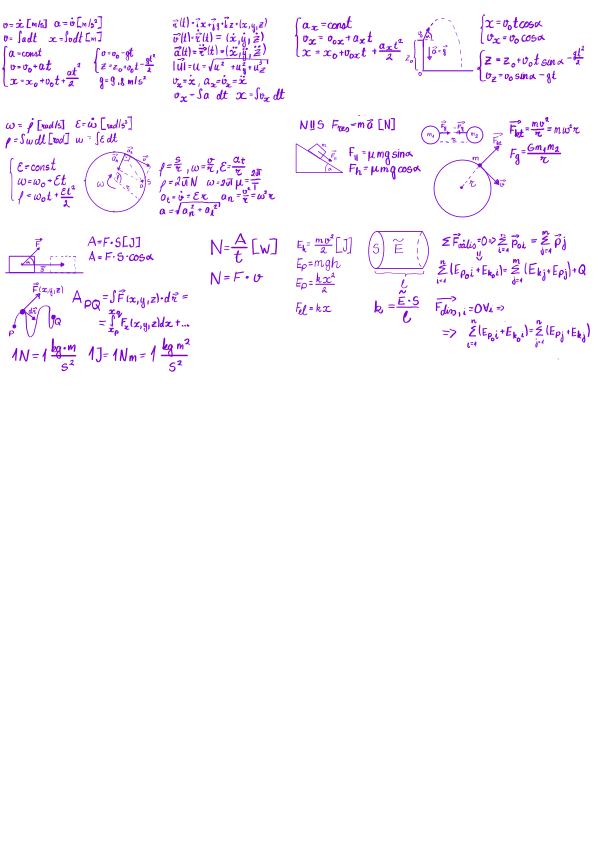 v = ẋ [m/s] a = v̇ [m/s²]
v = ∫a dt x = ∫v dt [m]
{ a = const
v = v₀ + at
x = x₀ + v₀t + at²/2
{ v = v₀ - gt
z = z₀ + v₀t - gt²/2
g = 9,8 m/s²
r⃗(t) = i⃗x + j⃗y + k⃗z = (x, y, z)
v⃗(t) = r⃗̇(t) = (ẋ, ẏ, ż)
a⃗(t) = r⃗̈(t) = (ẍ, ÿ, z̈)
|u⃗| = u = √u² + u²y + u²z
vx = ẋ, ax = v̇x = ẍ
vx = ∫a dt x = ∫vx dt
{ ax = const
vx = v₀x + axt
x = x₀ + v₀xt + axt²/2
z₀
a⃗ = g⃗
{ x = v₀t cosα
vx = v₀ cosα
{ z = z₀ + v₀t sinα - gt²/2
vz = v₀ sinα - gt
ω = ρ̇ [rad/s] ε = ω̇ [rad/s²]
ρ = ∫ω dt [rad] ω = ∫ε dt
{ ε = const
ω = ω₀ + εt
ρ = ω₀t + εt²/2
ω
ρ = s/r, ω = v/r, ε = at/r
ρ = 2πN ω = 2πμ = 2π/T
at = v̇ = εr an = v²/r = ω²r
a = √an² + at²
N ∦ S Fres = m a⃗ [N]
m
α
F∥ = μmg sinα
Fh = μmg cosα
m₁ F⃗g -F⃗g m₂
r
F⃗kt = mv²/r = mω²r
Fg = Gm₁m₂/r
m
F⃗kt
r
v⃗
F⃗
α
s⃗
A = F·S [J]
A = F·S·cosα
F⃗(x,y,z)
dr⃗
P
Q
APQ = ∫F⃗(x,y,z)·dr⃗ =
= ∫ xP xQ Fx(x,y,z)dx + ...
1N = 1 kg·m/s² 1J = 1Nm = 1 kg m²/s²
N = A/t [W]
N = F·v
Ek = mv²/2 [J]
Ep = mgh
Ep = kx²/2
Fel = kx
S Ẽ
l
k = Ẽ·S/l
∑ⁿᵢ₌₁ (Ep₀i + Ek₀i) = ∑ᵐⱼ₌₁ (Ekj + Epj) + Q
F⃗diss,i = 0 ∀i =>
=> ∑ⁿᵢ₌₁ (Ep₀i + Ek₀i) = ∑ⁿⱼ₌₁ (Epj + Ekj)